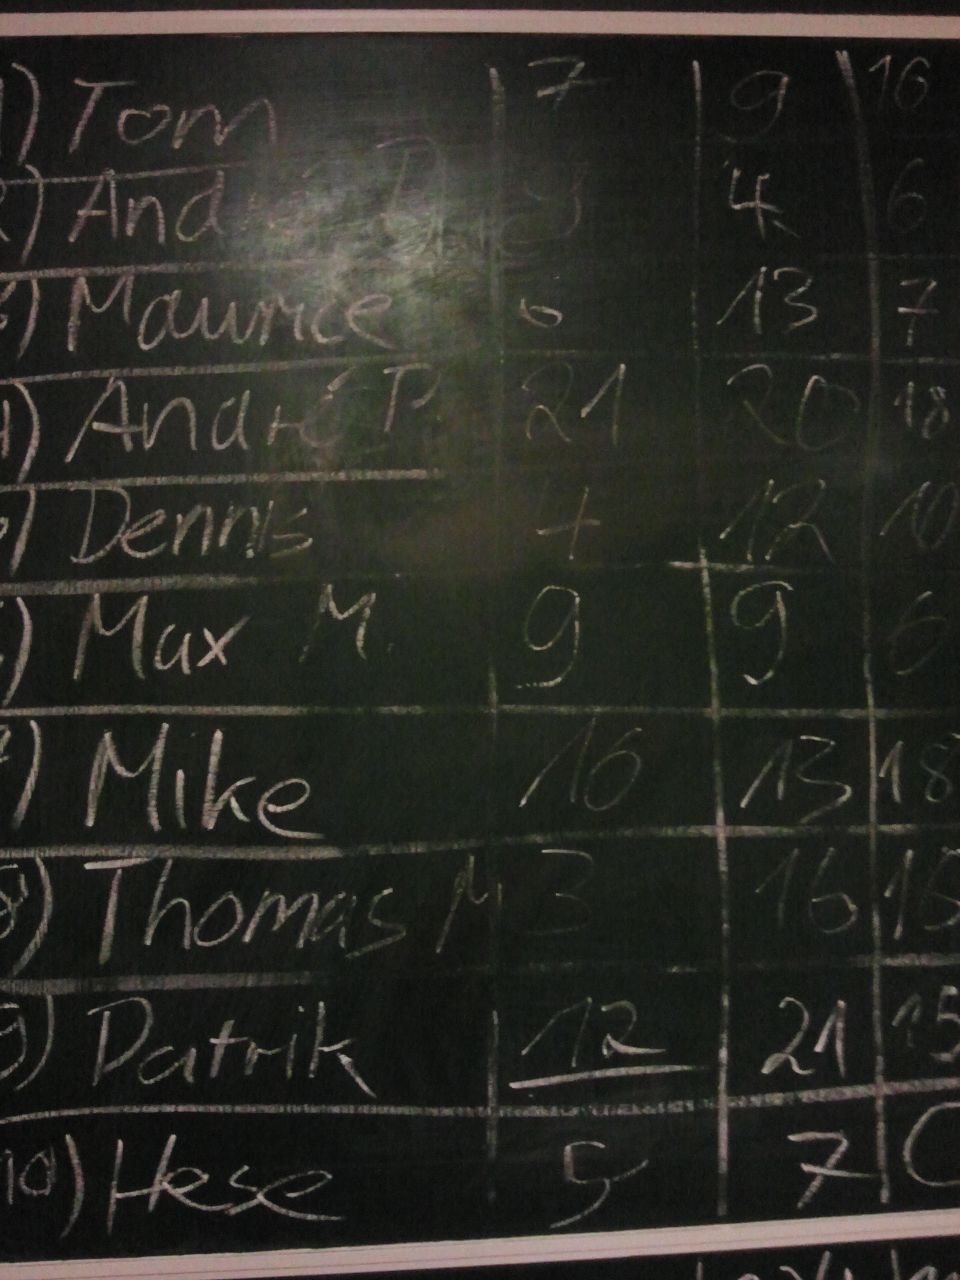 1) Tom 7 9 16
2) André P 9 4 6
3) Maurice 6 13 7
4) André P 21 20 18
5) Dennis 7 12 10
6) Max M. 9 9 6
7) Mike 16 13 18
8) Thomas M 3 16 15
9) Patrik 12 21 15
10) Hese 5 7